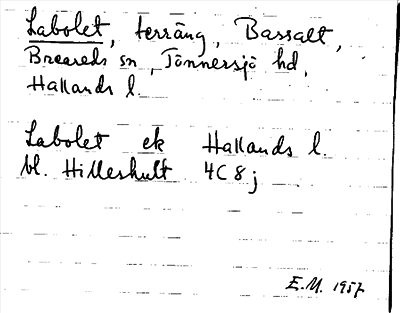 Labolet, terräng, Bassalt,
Breareds sn, Tönnersjö hd,
Hallands l.
Labolet ek Hallands l.
bl. Hilleshult 4C8j
E.M. 1957